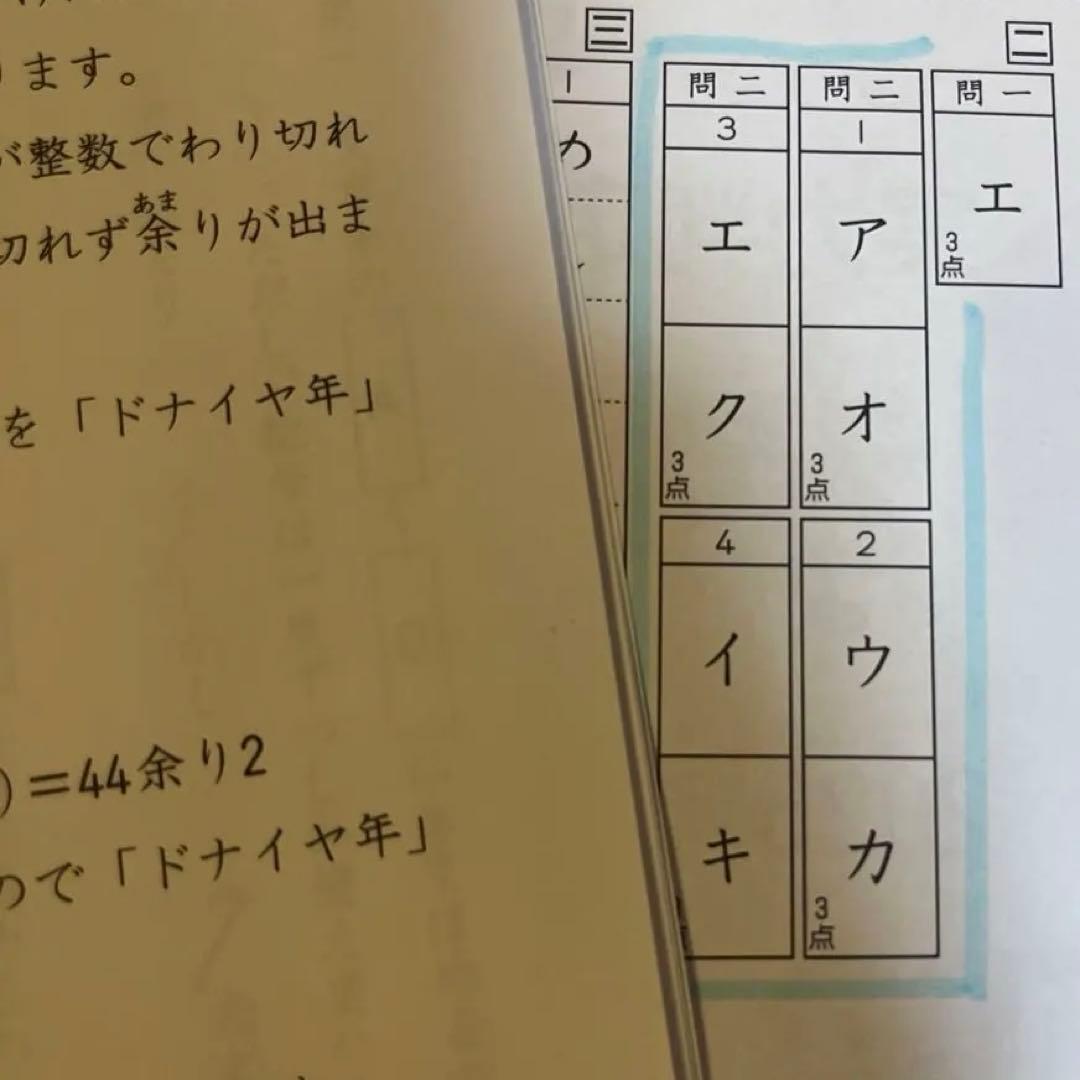 ります。
が整数でわり切れ
切れず余りが出ま
あま
を「ドナイヤ年」
)=44余り2
ので「ドナイヤ年」
二
問一
エ
3点
問二
1
ア
オ
3点
2
ウ
カ
3点
問二
3
エ
ク
3点
4
イ
キ
点
三
1
め